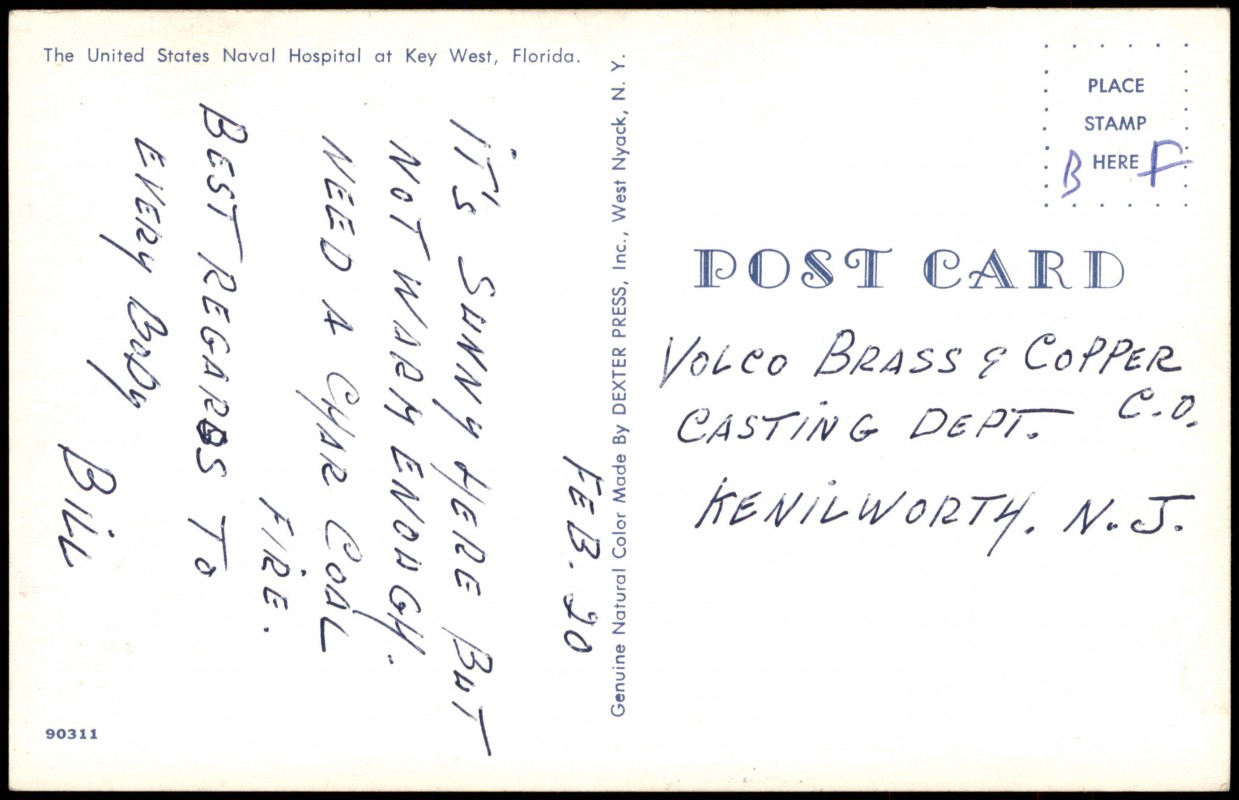 The United States Naval Hospital at Key West, Florida.
FEB. 20
IT'S SUNNY HERE BUT
NOT WARM ENOUGH.
NEED A CHAR COAL
FIRE.
BEST REGARDS TO
EVERY BODY
Bill
90311
Genuine Natural Color Made By DEXTER PRESS, Inc., West Nyack, N. Y.
PLACE
STAMP
HERE
B F
POST CARD
VOLCO BRASS & COPPER
C.O.
CASTING DEPT.
KENILWORTH. N.J.